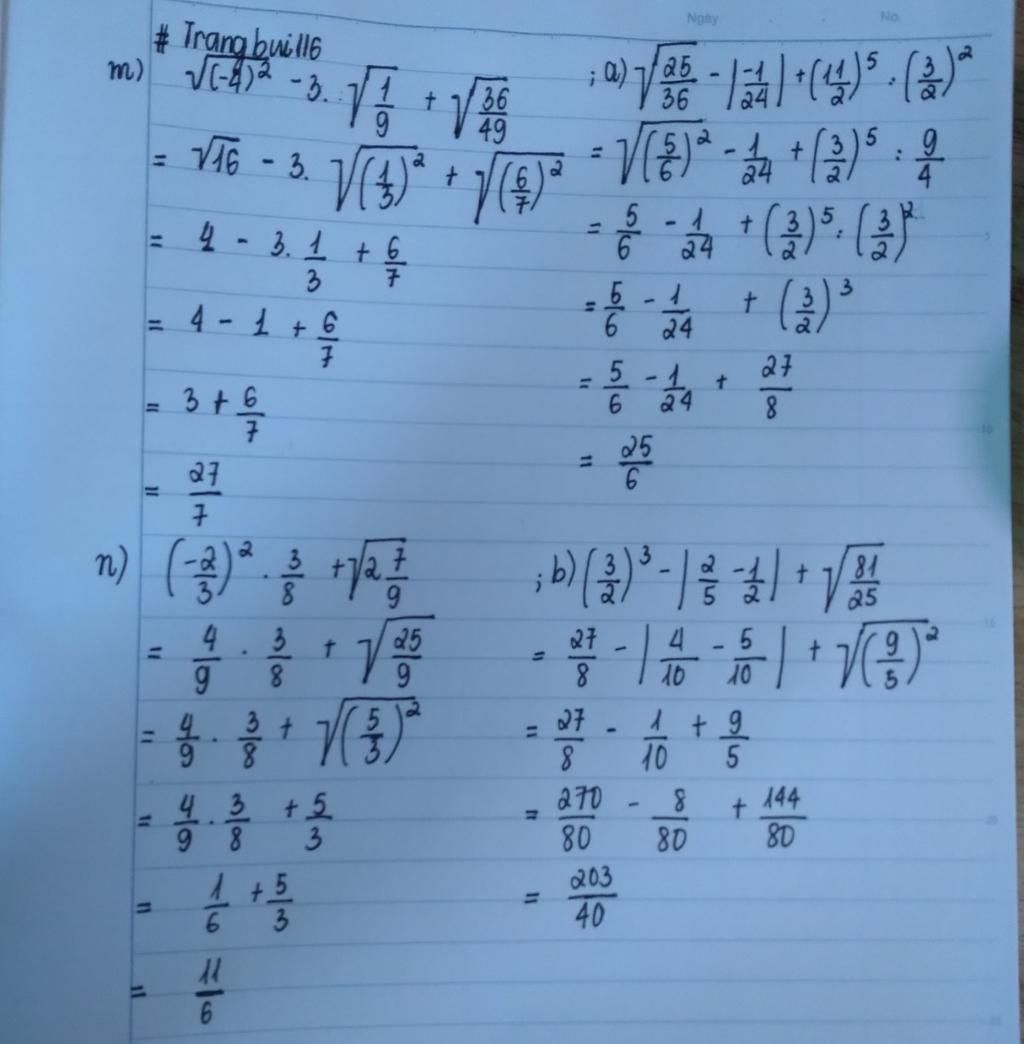 Ngày No.
# Trangbui116
m) √(-4)² - 3. √1/9 + √36/49
= √16 - 3. √(1/3)² + √(6/7)²
= 4 - 3. 1/3 + 6/7
= 4 - 1 + 6/7
= 3 + 6/7
= 27/7
; a) √25/36 - |-1/24| + (1 1/2)⁵ : (3/2)²
= √(5/6)² - 1/24 + (3/2)⁵ : 9/4
= 5/6 - 1/24 + (3/2)⁵ : (3/2)²
= 5/6 - 1/24 + (3/2)³
= 5/6 - 1/24 + 27/8
= 25/6
n) (-2/3)² . 3/8 + √2 7/9
= 4/9 . 3/8 + √25/9
= 4/9 . 3/8 + √(5/3)²
= 4/9 . 3/8 + 5/3
= 1/6 + 5/3
= 11/6
; b) (3/2)³ - |2/5 - 1/2| + √81/25
= 27/8 - |4/10 - 5/10| + √(9/5)²
= 27/8 - 1/10 + 9/5
= 270/80 - 8/80 + 144/80
= 203/40